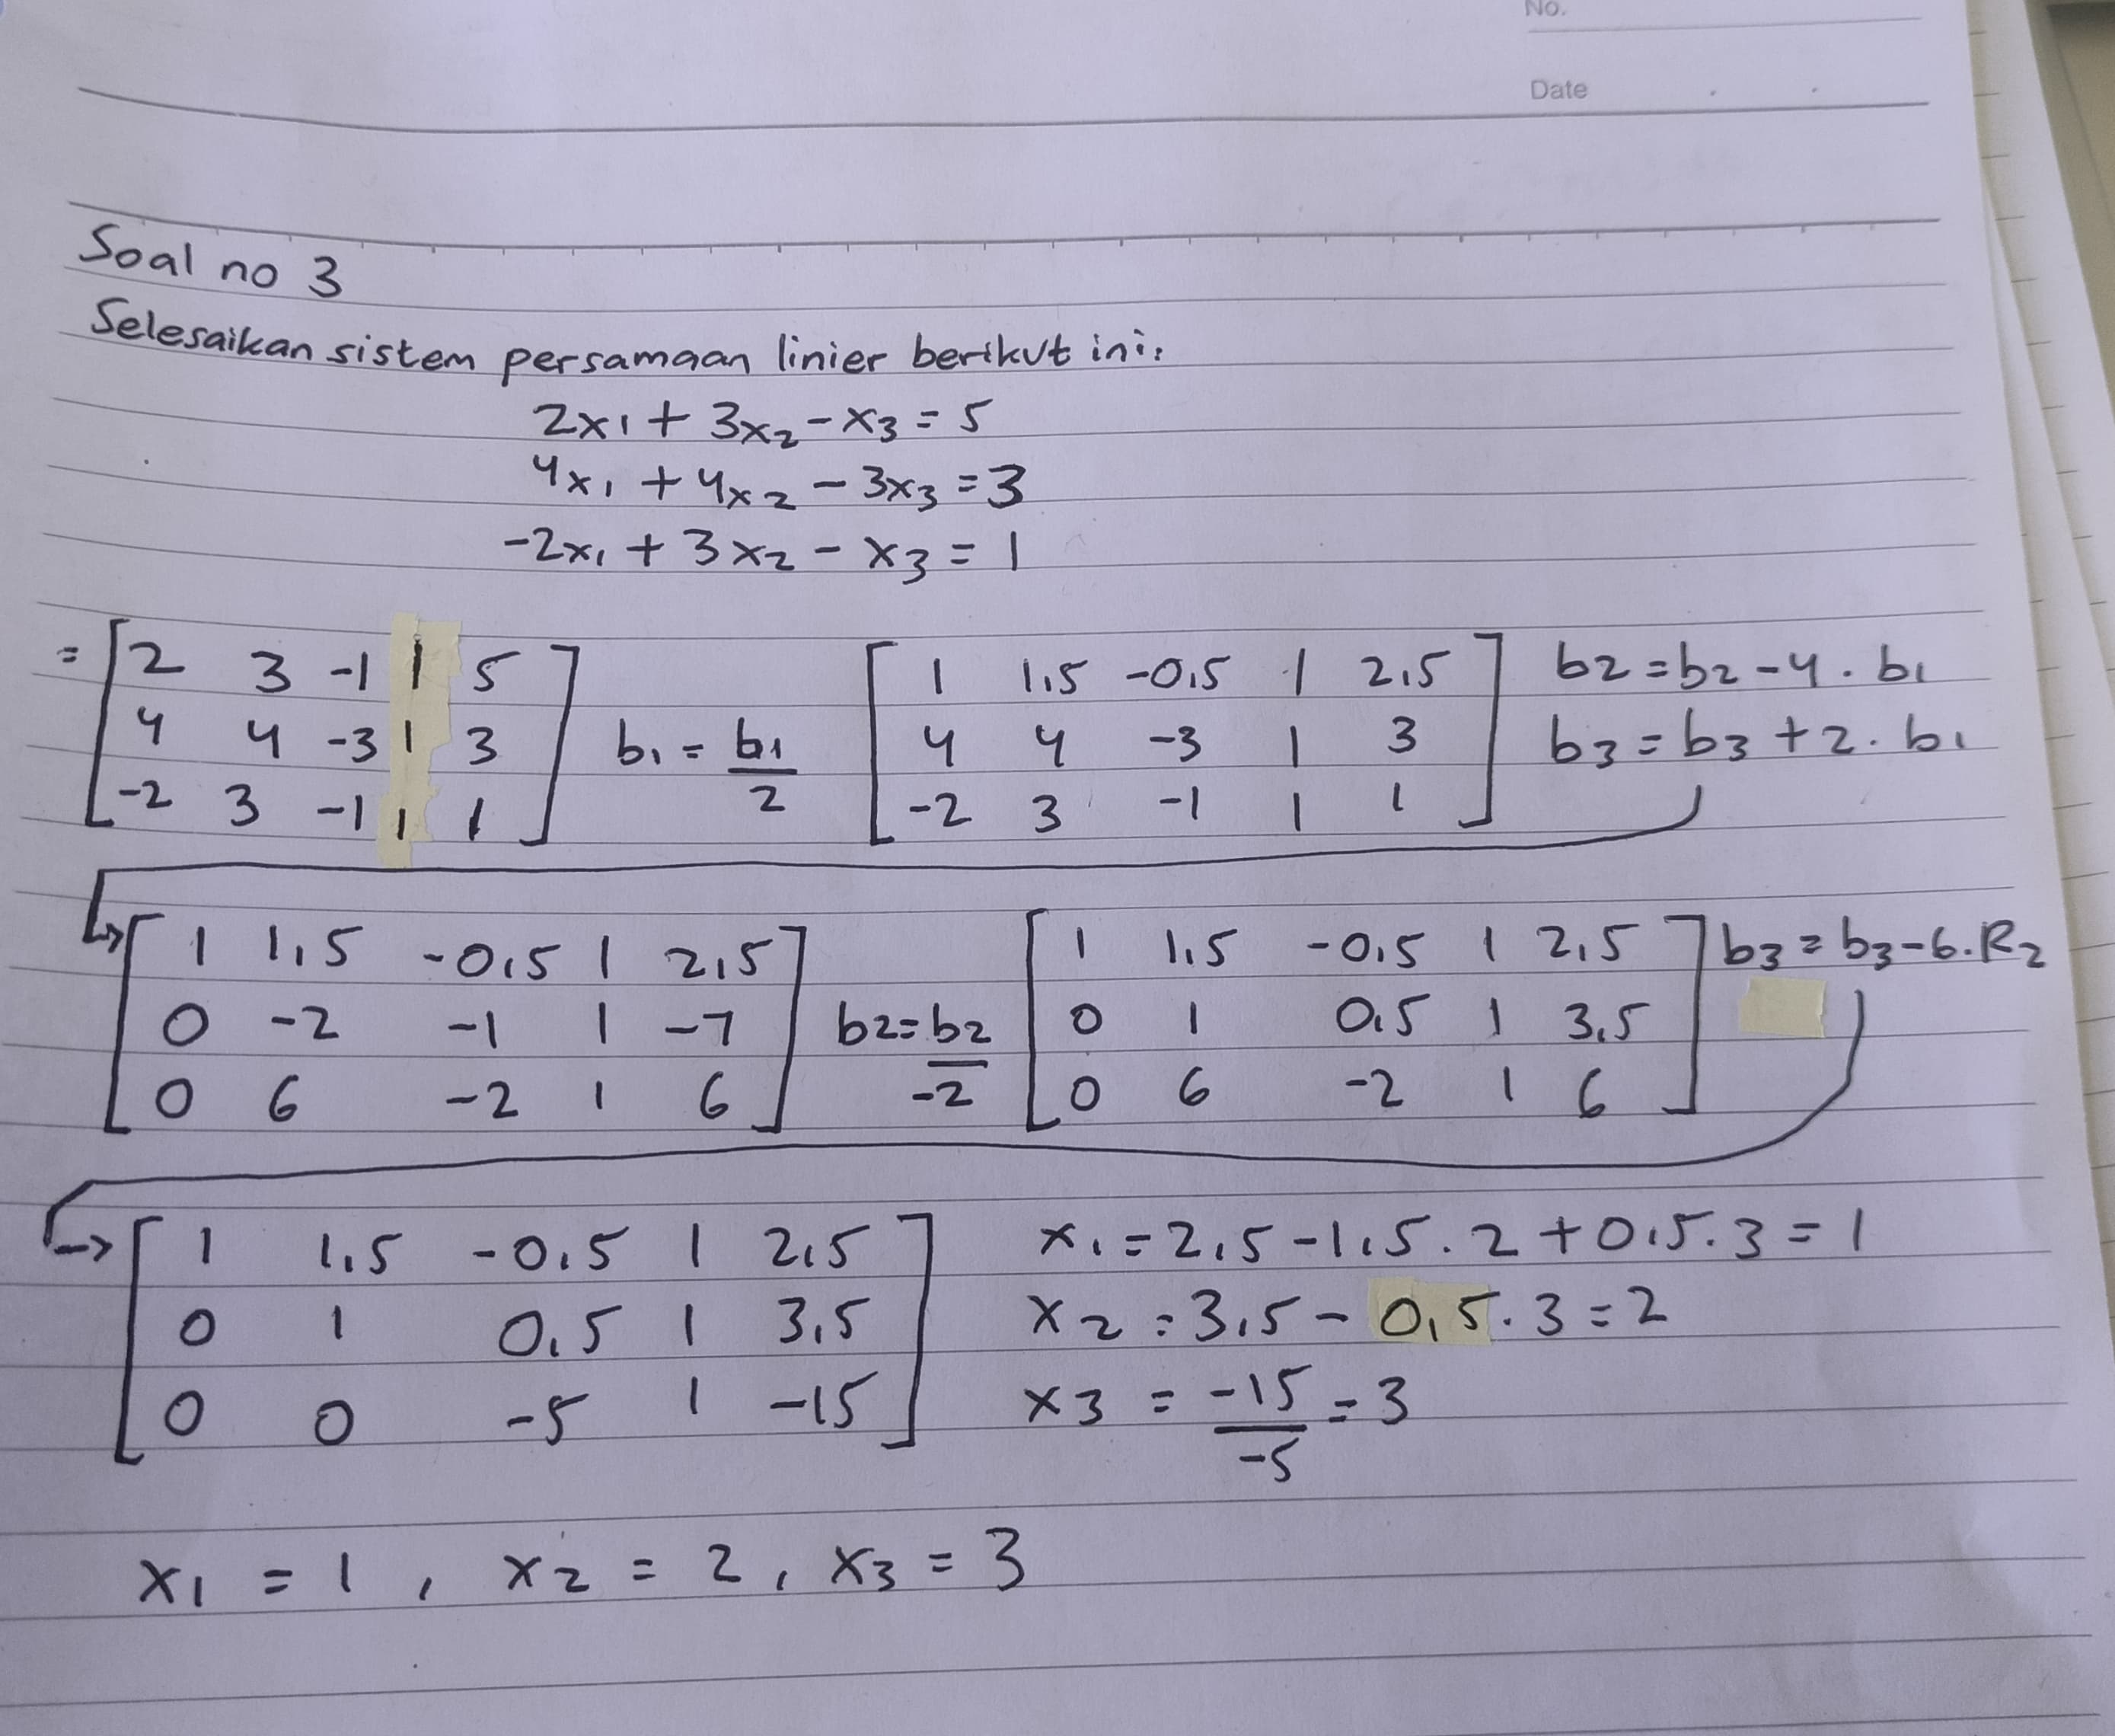 No.
Date
Soal no 3
Selesaikan sistem persamaan linier berikut ini:
2x1 + 3x2 - x3 = 5
4x1 + 4x2 - 3x3 = 3
-2x1 + 3x2 - x3 = 1
= [2 3 -1 | 5
4 4 -3 | 3
-2 3 -1 | 1] b1 = b1/2 [1 1,5 -0,5 | 2,5
4 4 -3 | 3
-2 3 -1 | 1] b2 = b2 - 4 . b1
b3 = b3 + 2 . b1
→ [1 1,5 -0,5 | 2,5
0 -2 -1 | -7
0 6 -2 | 6] b2 = b2/-2 [1 1,5 -0,5 | 2,5
0 1 0,5 | 3,5
0 6 -2 | 6] b3 = b3 - 6 . R2
→ [1 1,5 -0,5 | 2,5
0 1 0,5 | 3,5
0 0 -5 | -15]
x1 = 2,5 - 1,5 . 2 + 0,5 . 3 = 1
x2 = 3,5 - 0,5 . 3 = 2
x3 = -15/-5 = 3
x1 = 1 , x2 = 2 , x3 = 3